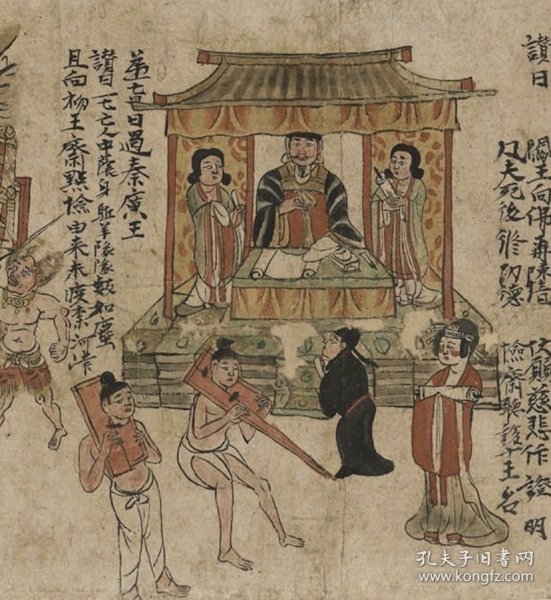 讚曰
閻王向佛再陳情　伏願慈悲作證明
凡夫死後修功德　檢齋聽說十王名
苐七日過秦廣王
讚曰一七亡人中蔭身駈羊隊隊數如塵
且向初王齋點檢由来未渡柰河津
孔夫子旧书网
www.kongfz.com